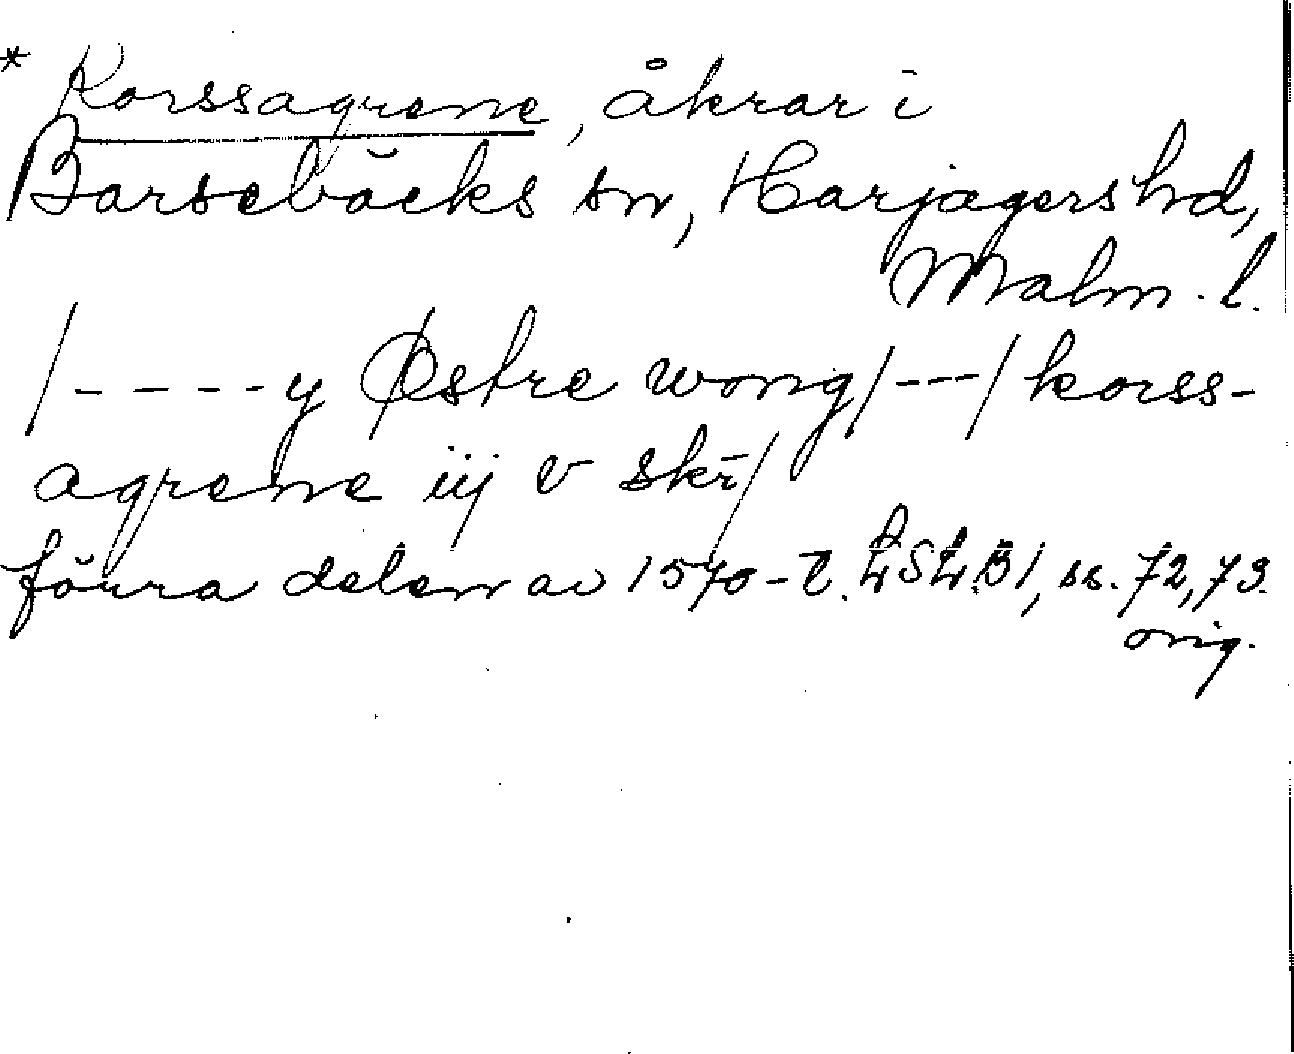 * Korssagrene, åkrar i
Barsebäcks sn, Harjagers hd,
Malm. l.
/- - - - y Østre wong/---/korss-
agrene iij v skr̄/
förra delen av 1570-t. LSLB1, ss. 72, 73.
orig.